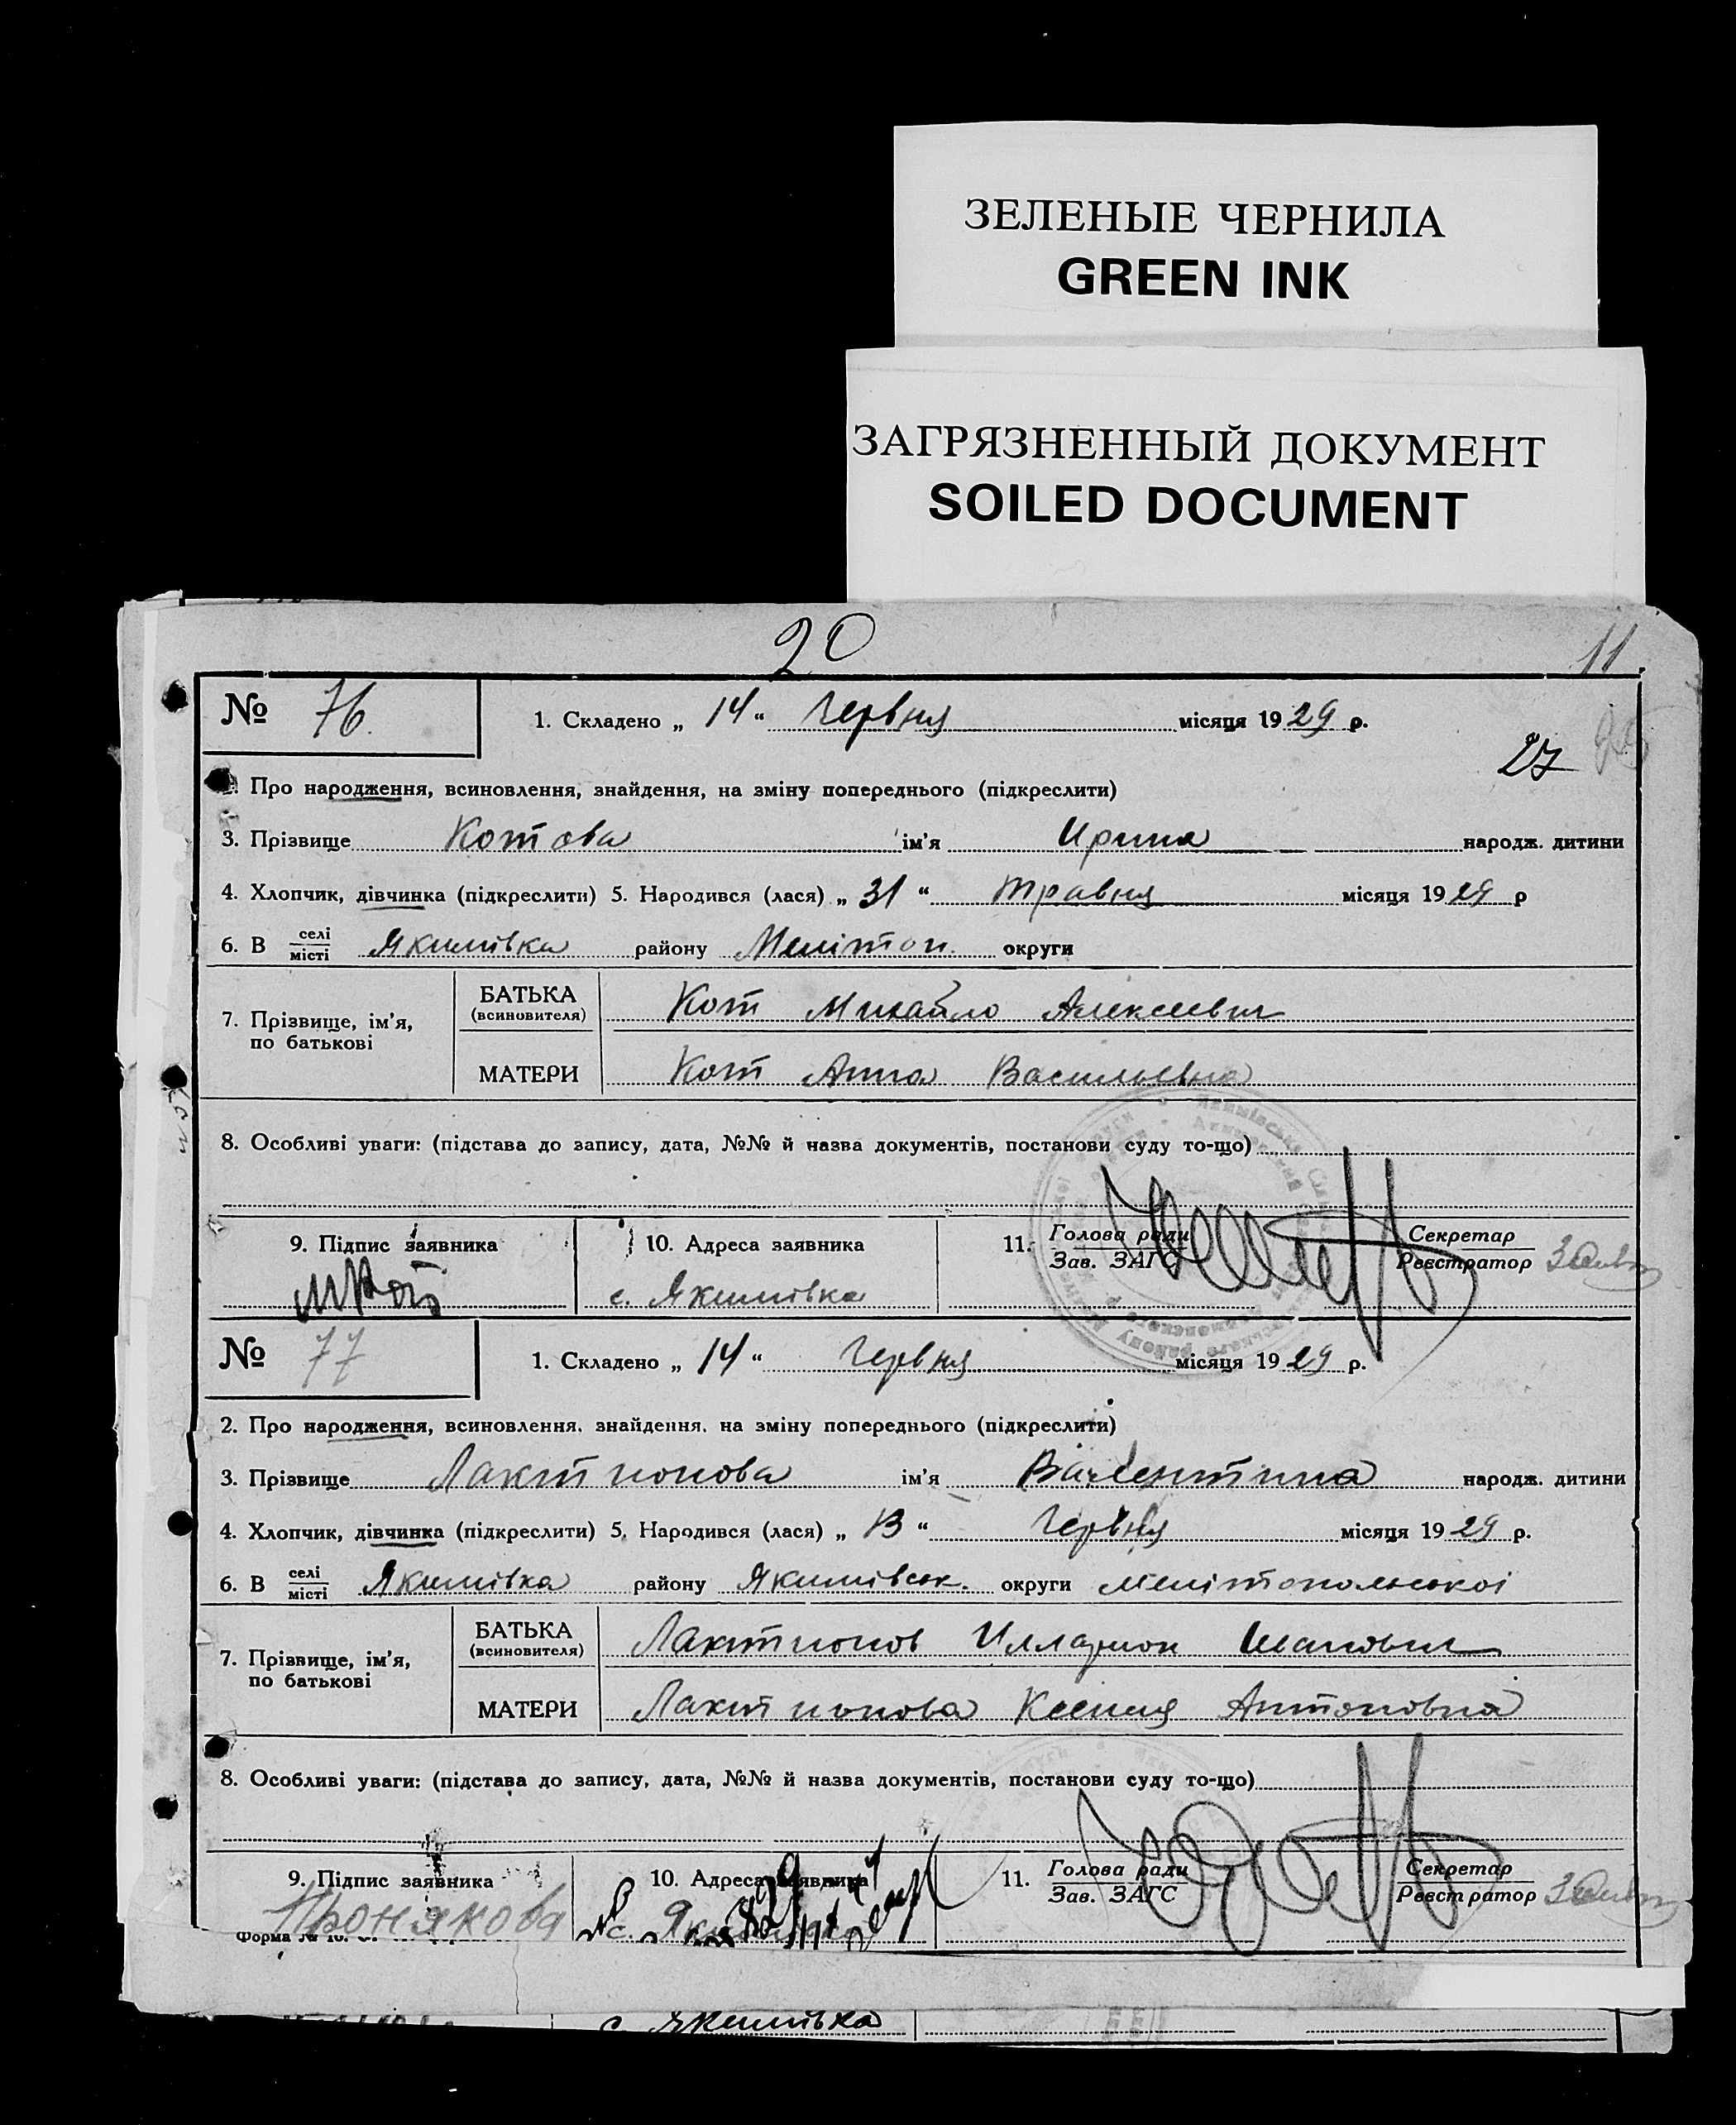 ЗЕЛЕНЫЕ ЧЕРНИЛА
GREEN INK
ЗАГРЯЗНЕННЫЙ ДОКУМЕНТ
SOILED DOCUMENT
20
11
№ 76. 1. Складено „ 14 “ Червня місяця 1929 р.
27
2. Про народження, всиновлення, знайдення, на зміну попереднього (підкреслити)
3. Прізвище Котова ім'я Ирина народж. дитини
4. Хлопчик, дівчинка (підкреслити) 5. Народився (лася) „ 31 “ травня місяця 1929 р
6. В селі місті Якимівка району Мелітоп. округи
7. Прізвище, ім'я, по батькові
БАТЬКА (всиновителя) Кот Михайло Алексеевич
МАТЕРИ Кот Анна Васильевна
8. Особливі уваги: (підстава до запису, дата, №№ й назва документів, постанови суду то-що)
9. Підпис заявника 10. Адреса заявника 11. Голова ради Зав. ЗАГС Секретар Реєстратор
МКот с. Якимівка
№ 77 1. Складено „ 14 “ Червня місяця 1929 р.
2. Про народження, всиновлення, знайдення, на зміну попереднього (підкреслити)
3. Прізвище Лактионова ім'я Валентина народж. дитини
4. Хлопчик, дівчинка (підкреслити) 5. Народився (лася) „ 13 “ Червня місяця 1929 р.
6. В селі місті Якимівка району Якимівськ. округи Мелітопольскоі
7. Прізвище, ім'я, по батькові
БАТЬКА (всиновителя) Лактионов Илларион
МАТЕРИ Лактионова Ксения Антоновна
8. Особливі уваги: (підстава до запису, дата, №№ й назва документів, постанови суду то-що)
9. Підпис заявника 10. Адреса заявника 11. Голова ради Зав. ЗАГС Секретар Реєстратор
Пронякова с.
Форма № 10.
с. Якимівка